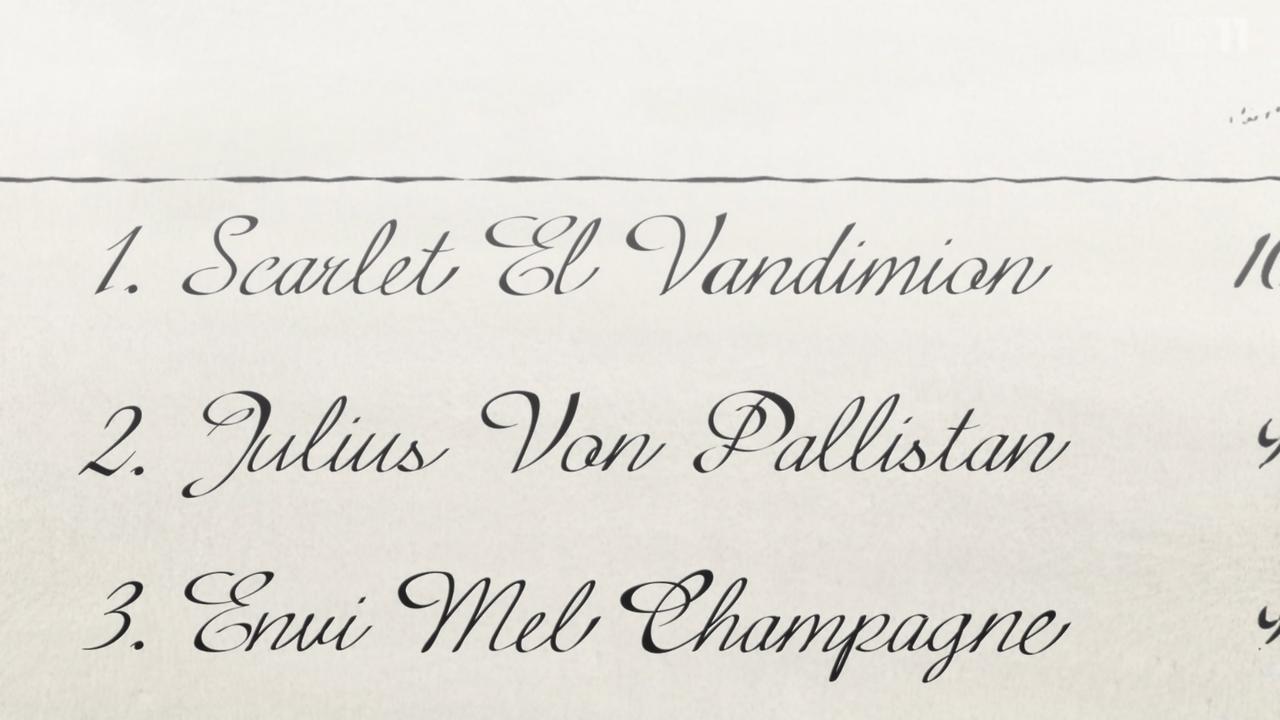 1. Scarlet El Vandimion
2. Julius Von Pallistan
3. Envi Mel Champagne